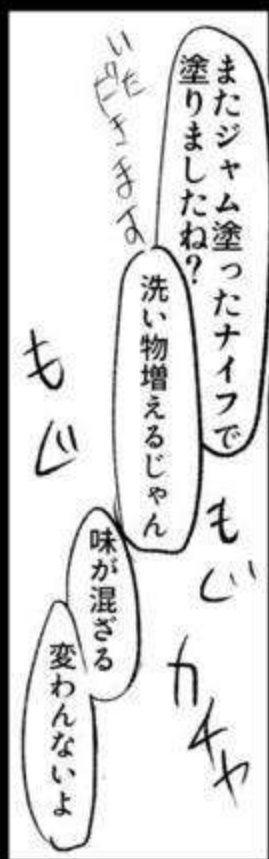 またジャム塗ったナイフで
塗りましたね?
いた
だきます
洗い物増えるじゃん
もぐ
カチャ
もじ
味が混ざる
変わんないよ